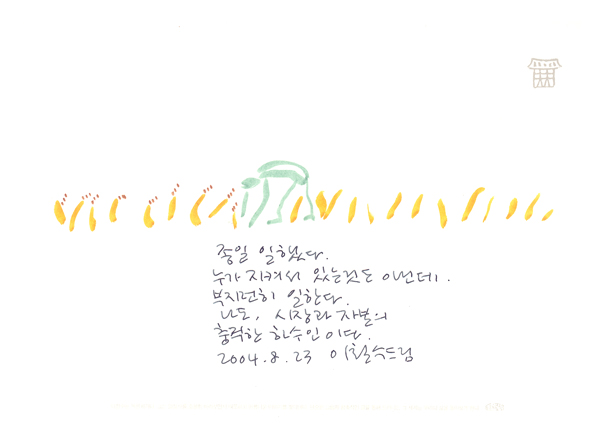 종일 일했다.
누가 지켜서 있는것도 아닌데.
부지런히 일한다.
나도, 시장과 자본의
충직한 하수인이다.
2004.8.23 이철수드림